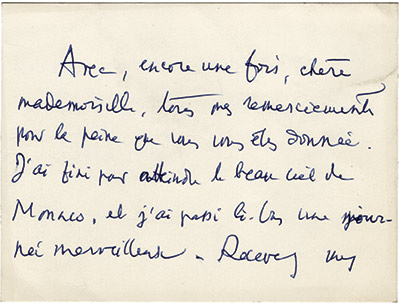 Avec, encore une fois, chère
mademoiselle, tous mes remerciements
pour la peine que vous vous êtes donnée.
J'ai fini par atteindre le beau ciel de
Monaco, et j'ai passé là-bas une jour-
née merveilleuse. Recevez mes